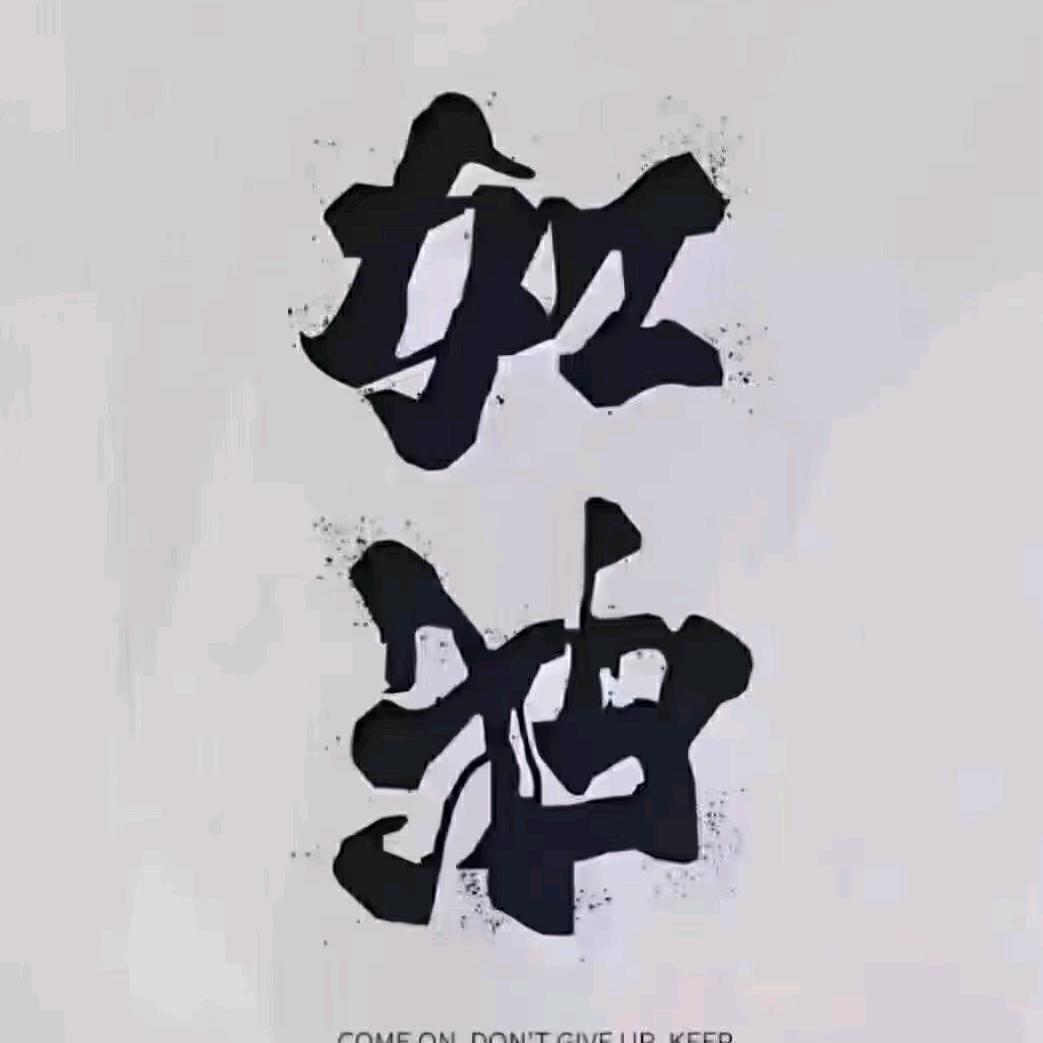 加
油
COME ON, DON'T GIVE UP, KEEP